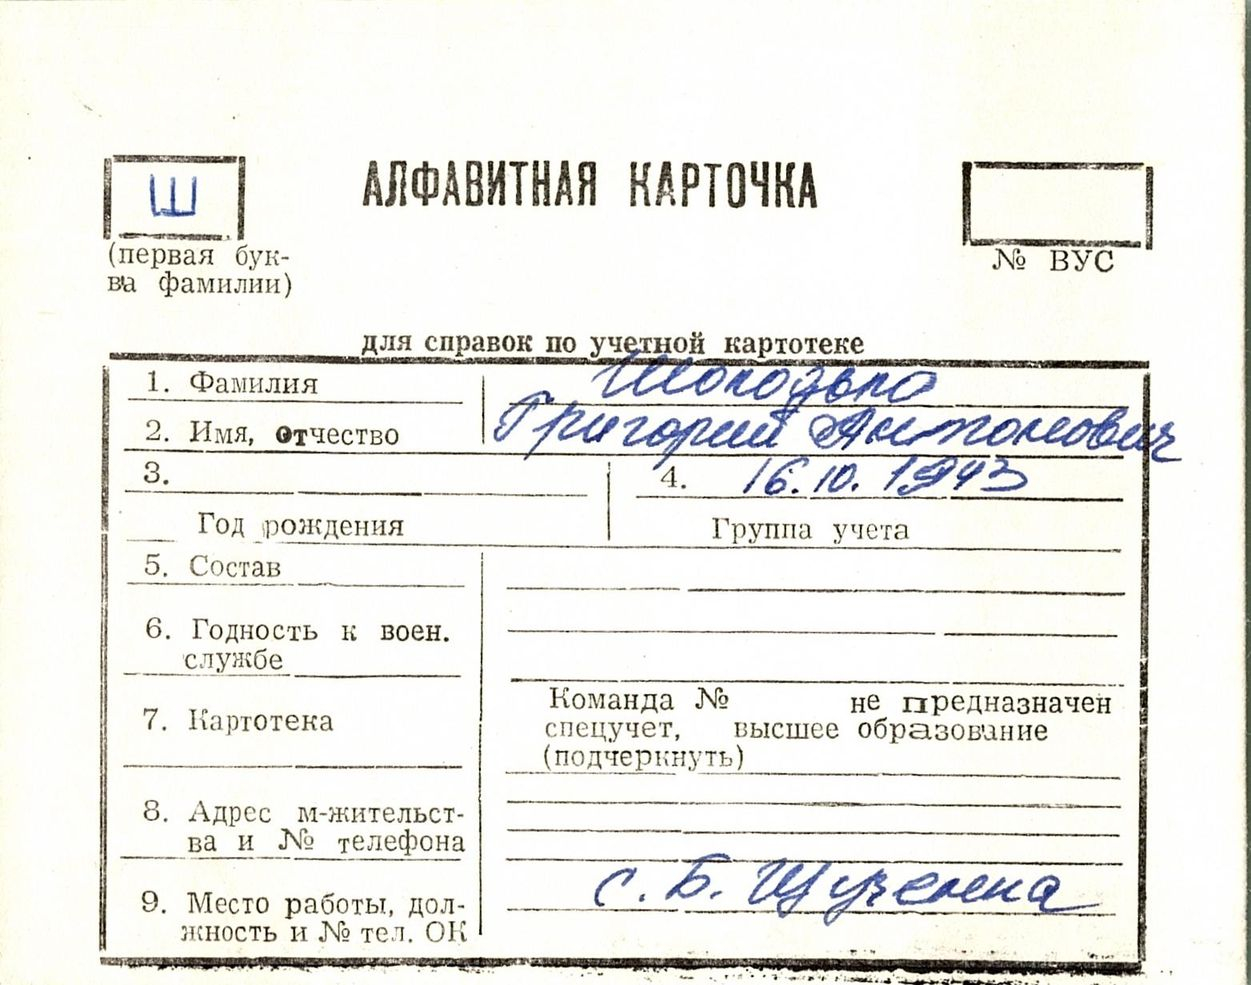 Ш
АЛФАВИТНАЯ КАРТОЧКА
(первая бук-
ва фамилии)
№ ВУС
для справок по учетной картотеке
1. Фамилия
2. Имя, отчество Григорий Антонович
3. 4. 16.10.1943
Год рождения Группа учета
5. Состав
6. Годность к воен.
службе
7. Картотека
Команда № не предназначен
спецучет, высшее образование
(подчеркнуть)
8. Адрес м-жительст-
ва и № телефона
с. Б.
9. Место работы, дол-
жность и № тел. ОК